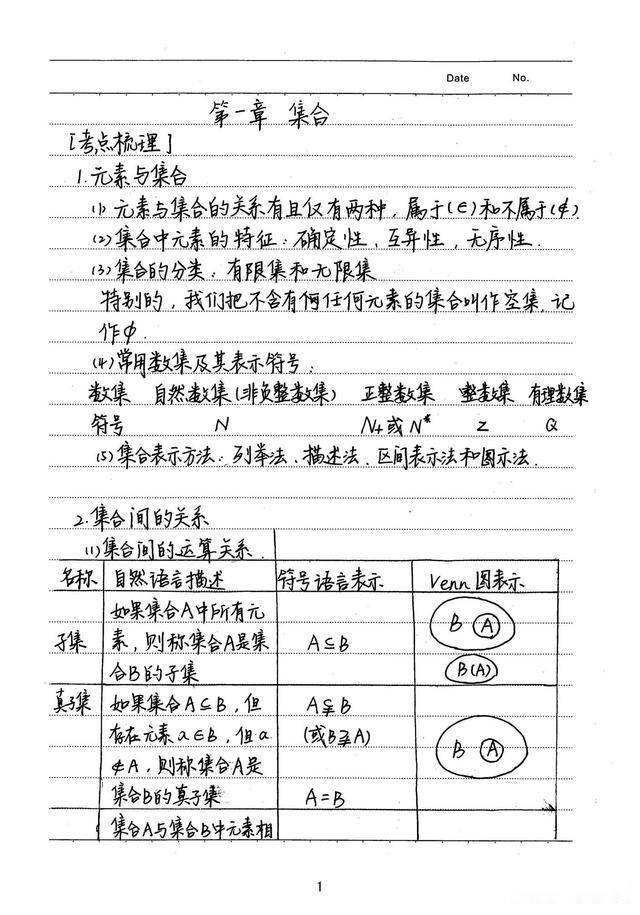 Date No.
第一章 集合
[考点梳理]
1.元素与集合
(1) 元素与集合的关系有且仅有两种，属于(∈)和不属于(∉)
(2)集合中元素的特征：确定性、互异性，无序性.
(3)集合的分类：有限集和无限集
特别的，我们把不含有何任何元素的集合叫作空集，记
作∅.
(4)常用数集及其表示符号：
数集 自然数集(非负整数集) 正整数集 整数集 有理数集
符号 N N+或N* Z Q
(5)集合表示方法：列举法、描述法、区间表示法和图示法.
2.集合间的关系
(1)集合间的运算关系.
名称 自然语言描述 符号语言表示 Venn图表示
如果集合A中所有元
B A
子集 素，则称集合A是集 A⊆B
合B的子集
B(A)
真子集 如果集合A⊆B，但 A⫋B
存在元素a∈B，但a (或B⫌A)
B A
∉A，则称集合A是
集合B的真子集 A=B
集合A与集合B中元素相
1